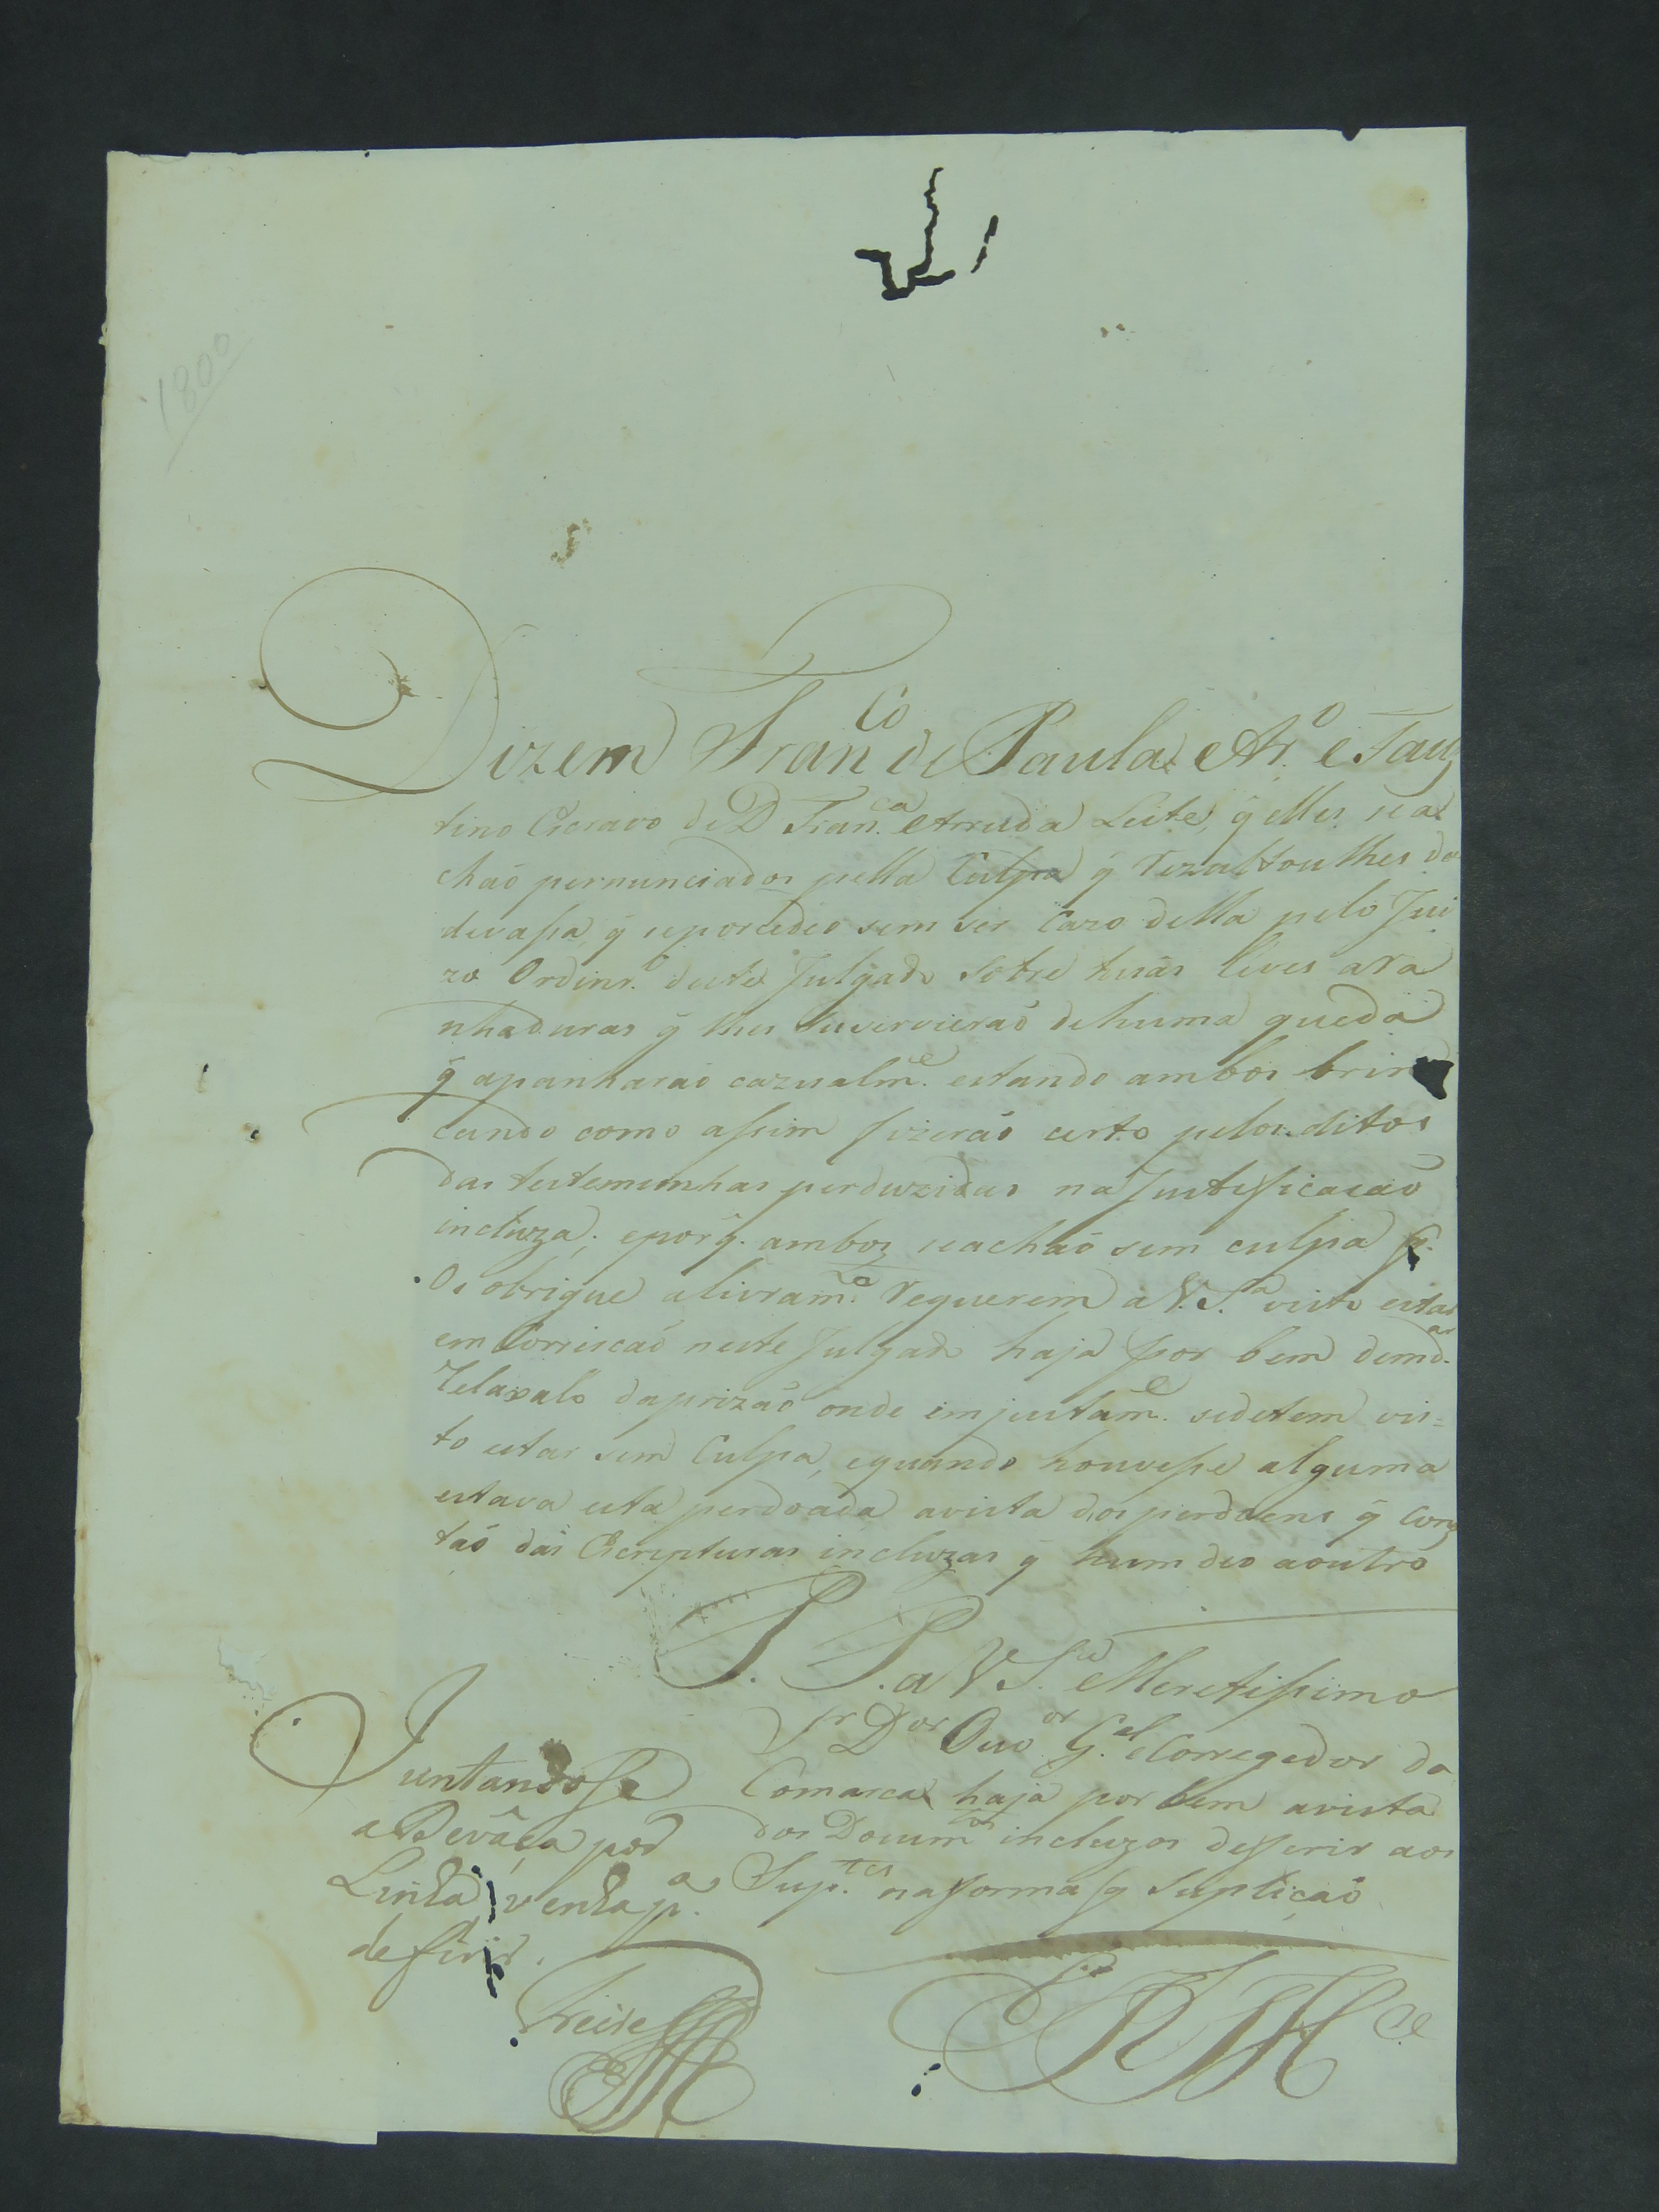 1800
Dizem Fran.co de Paula Ar.o e Faus
tino Escravo de D Fran.ca Arruda Leite, q̃ elles se a
chaõ pernunciados pella Culpa q̃ rezultou lhes da
devaſsa q̃ se porcedeo sem ser cazo della pelo Jui
zo Ordinr.o deste Julgado sobre huãs leves ara
nhaduras q̃ lhes de huma queda
q̃ apanharaõ cazualm.e estando ambos brin
cando como aſsim fizeraõ certo pelos ditos
das testemunhas perduzidas na Justificacaõ
incluza; e porq̃. ambos se achaõ sem culpa q̃.
Os obrigue a livram.e requerem a V.S.a visto estar
em Correicaõ neste Julgado haja por bem de md.ar
relaxalo da prizaõ onde injustam.e se detem vis=
to estar sem Culpa, e quando houveſse alguma
estava esta perdoada a vista dos perdoens q̃ cons
taõ das Escripturas incluzas q̃ hum deo a outro
P. P. a V S.a Meretiſsimo
Sr D.or Ouv.or G.el e Corregedor da
Comarca haja por bem a vista
dos Docum.tos incluzos defferir aos
Sup.tes na forma q̃ Suplicaõ
E R M.ce
Juntandoſe
a Devaça por
Linha, venha p.a
defirir.
Freire